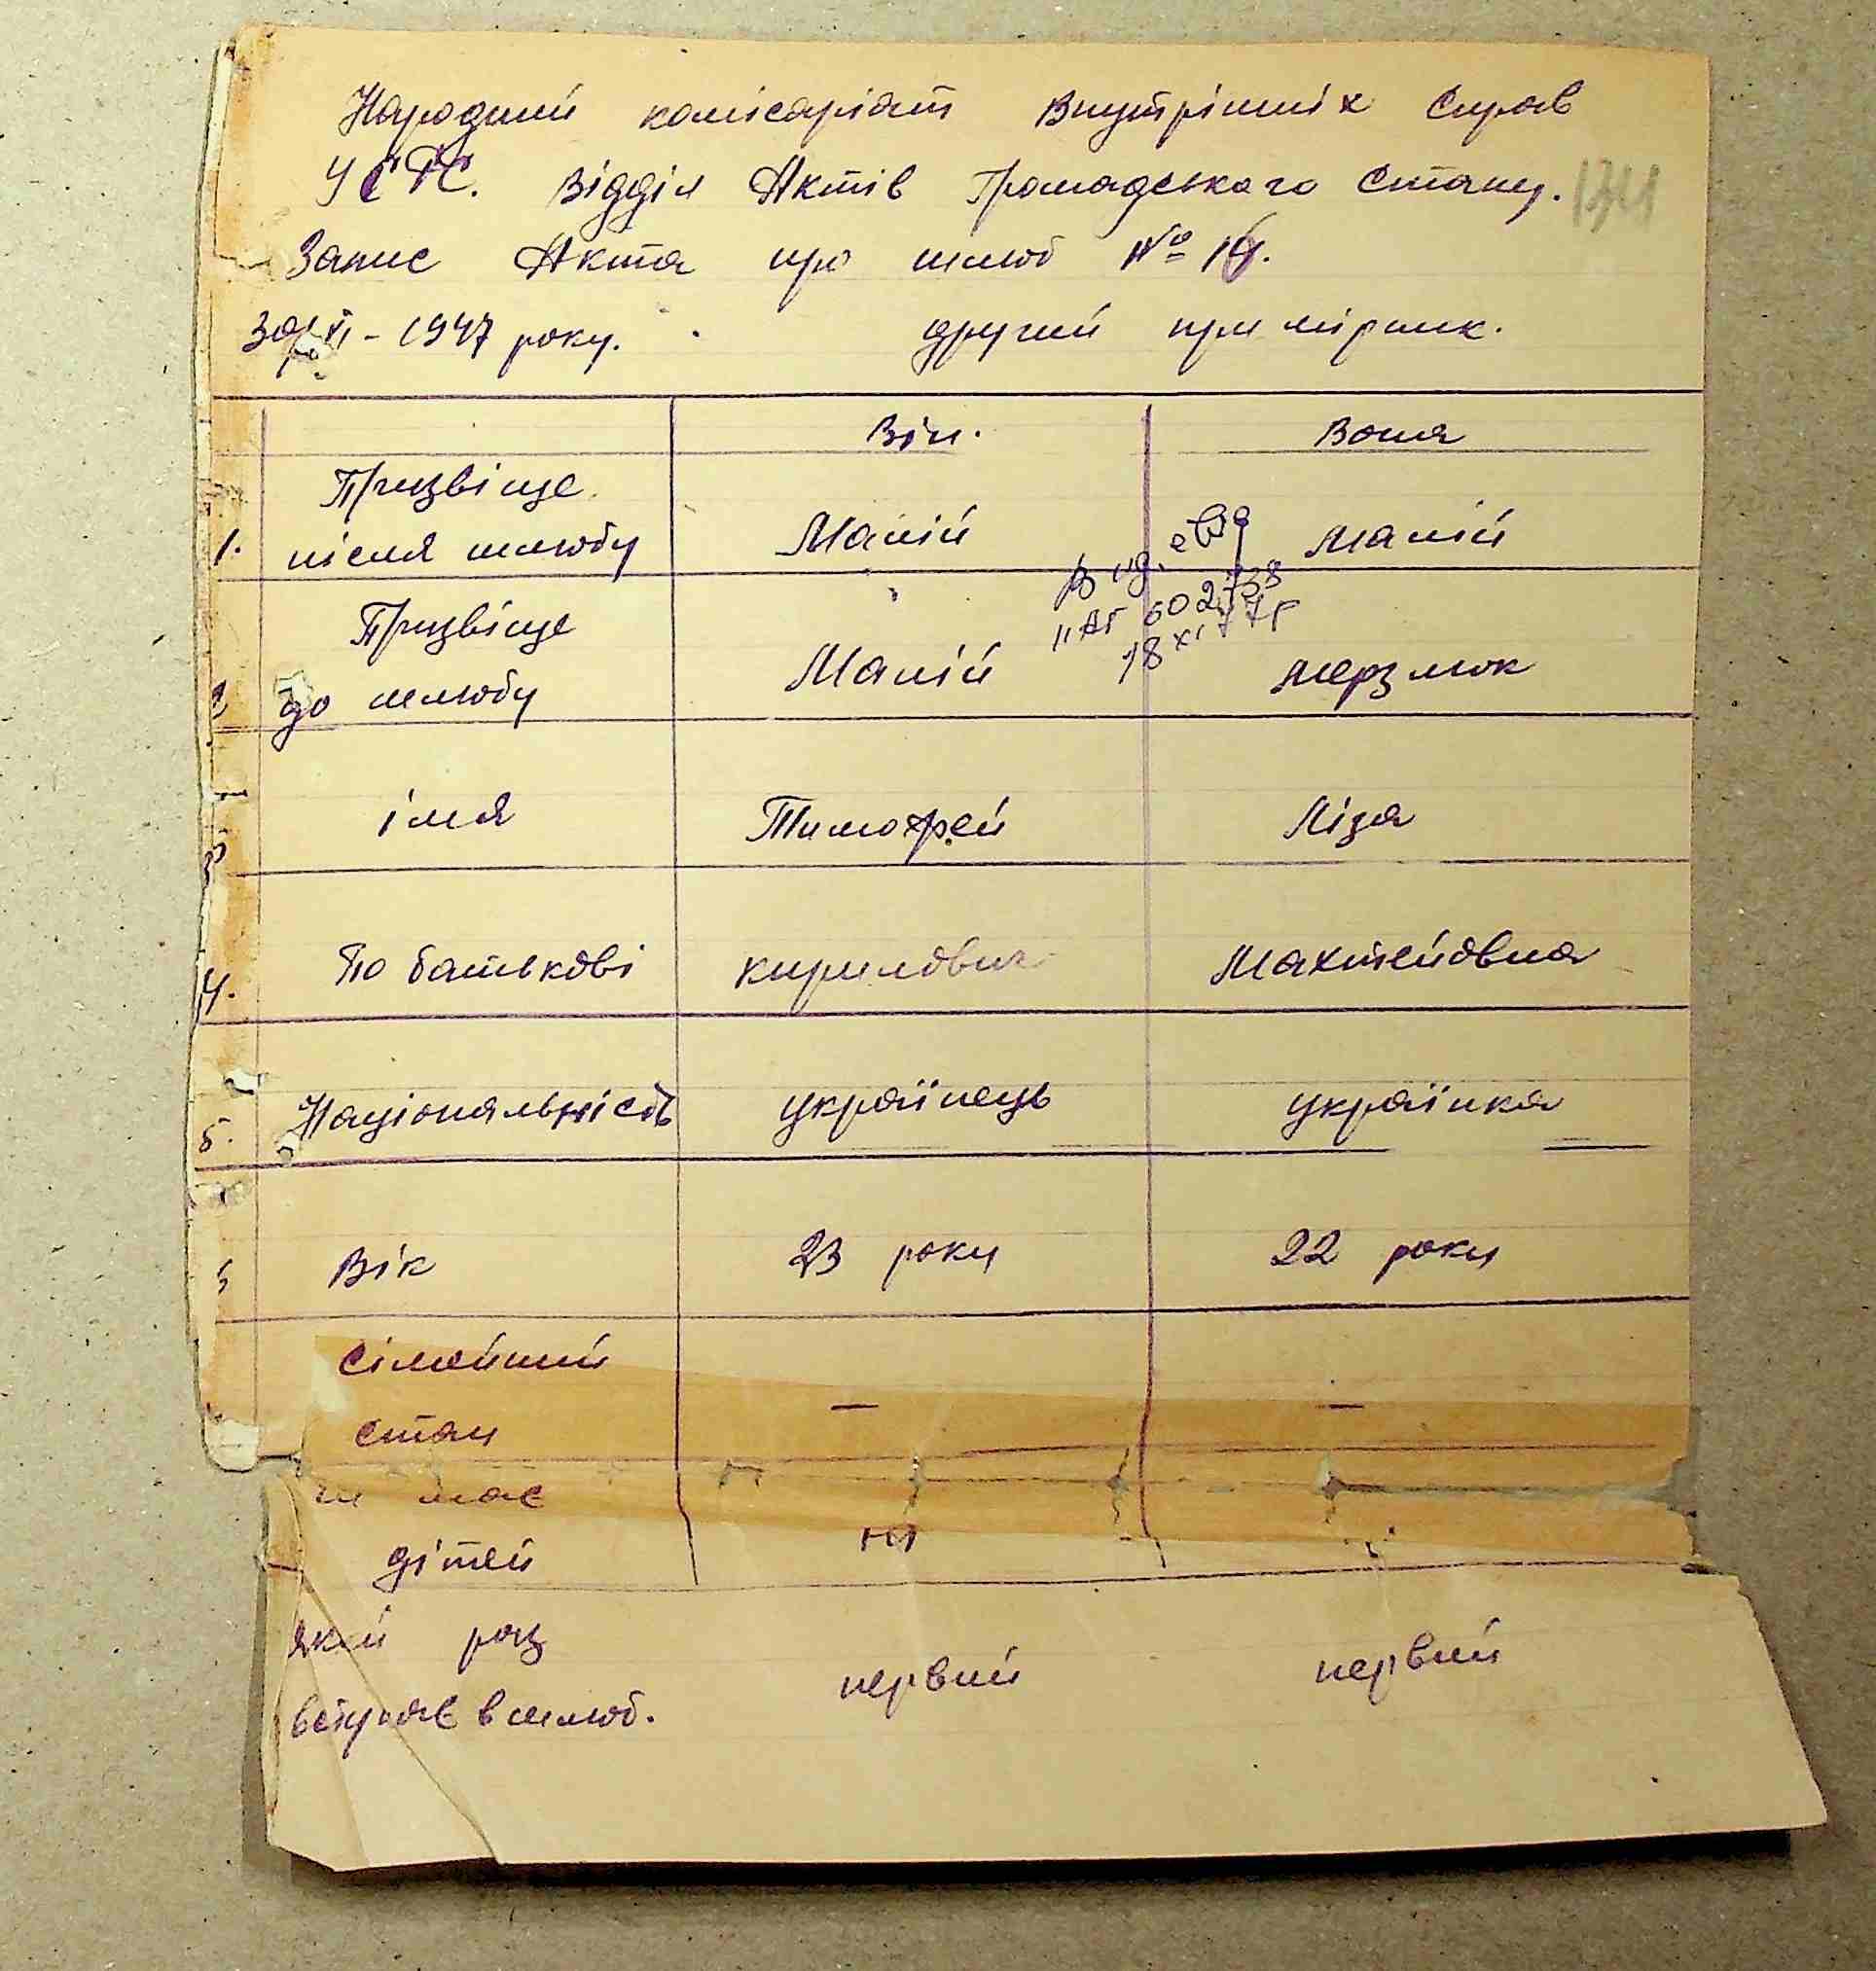 Народний комісаріат внутрішніх справ
УСРС. Відділ Актів Громадського Стану.
Запис Акта про шлюб № 14.
30/XI - 1947 року. другий примірник.
Він. Вона
Призвіще
1. після шлюбу Малій Малій
Вид. свід
"АГ 602738
18 XI 77р
Призвіще
2 до шлюбу Малій Мерзлюк
3 імя Тимофей Ліза
4. По батькові кирилович Махтейовна
5. Національність українець українка
Вік 23 роки 22 роки
Сімейний
стан — —
чи має
дітей ні
який раз
вступає в шлюб. первий первий